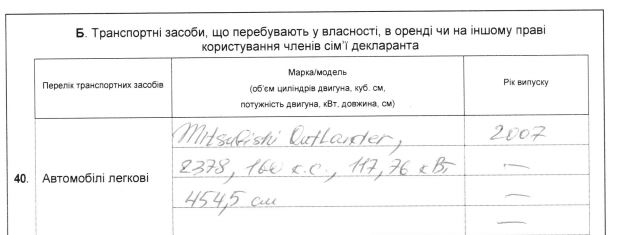 Б. Транспортні засоби, що перебувають у власності, в оренді чи на іншому праві
користування членів сім'ї декларанта
Перелік транспортних засобів
Марка/модель
(об'єм циліндрів двигуна, куб. см,
потужність двигуна, кВт, довжина, см)
Рік випуску
40. Автомобілі легкові
Mitsubishi Outlander, 2007
2378, 160 к.с., 117,76 кВт —
454,5 см —
—